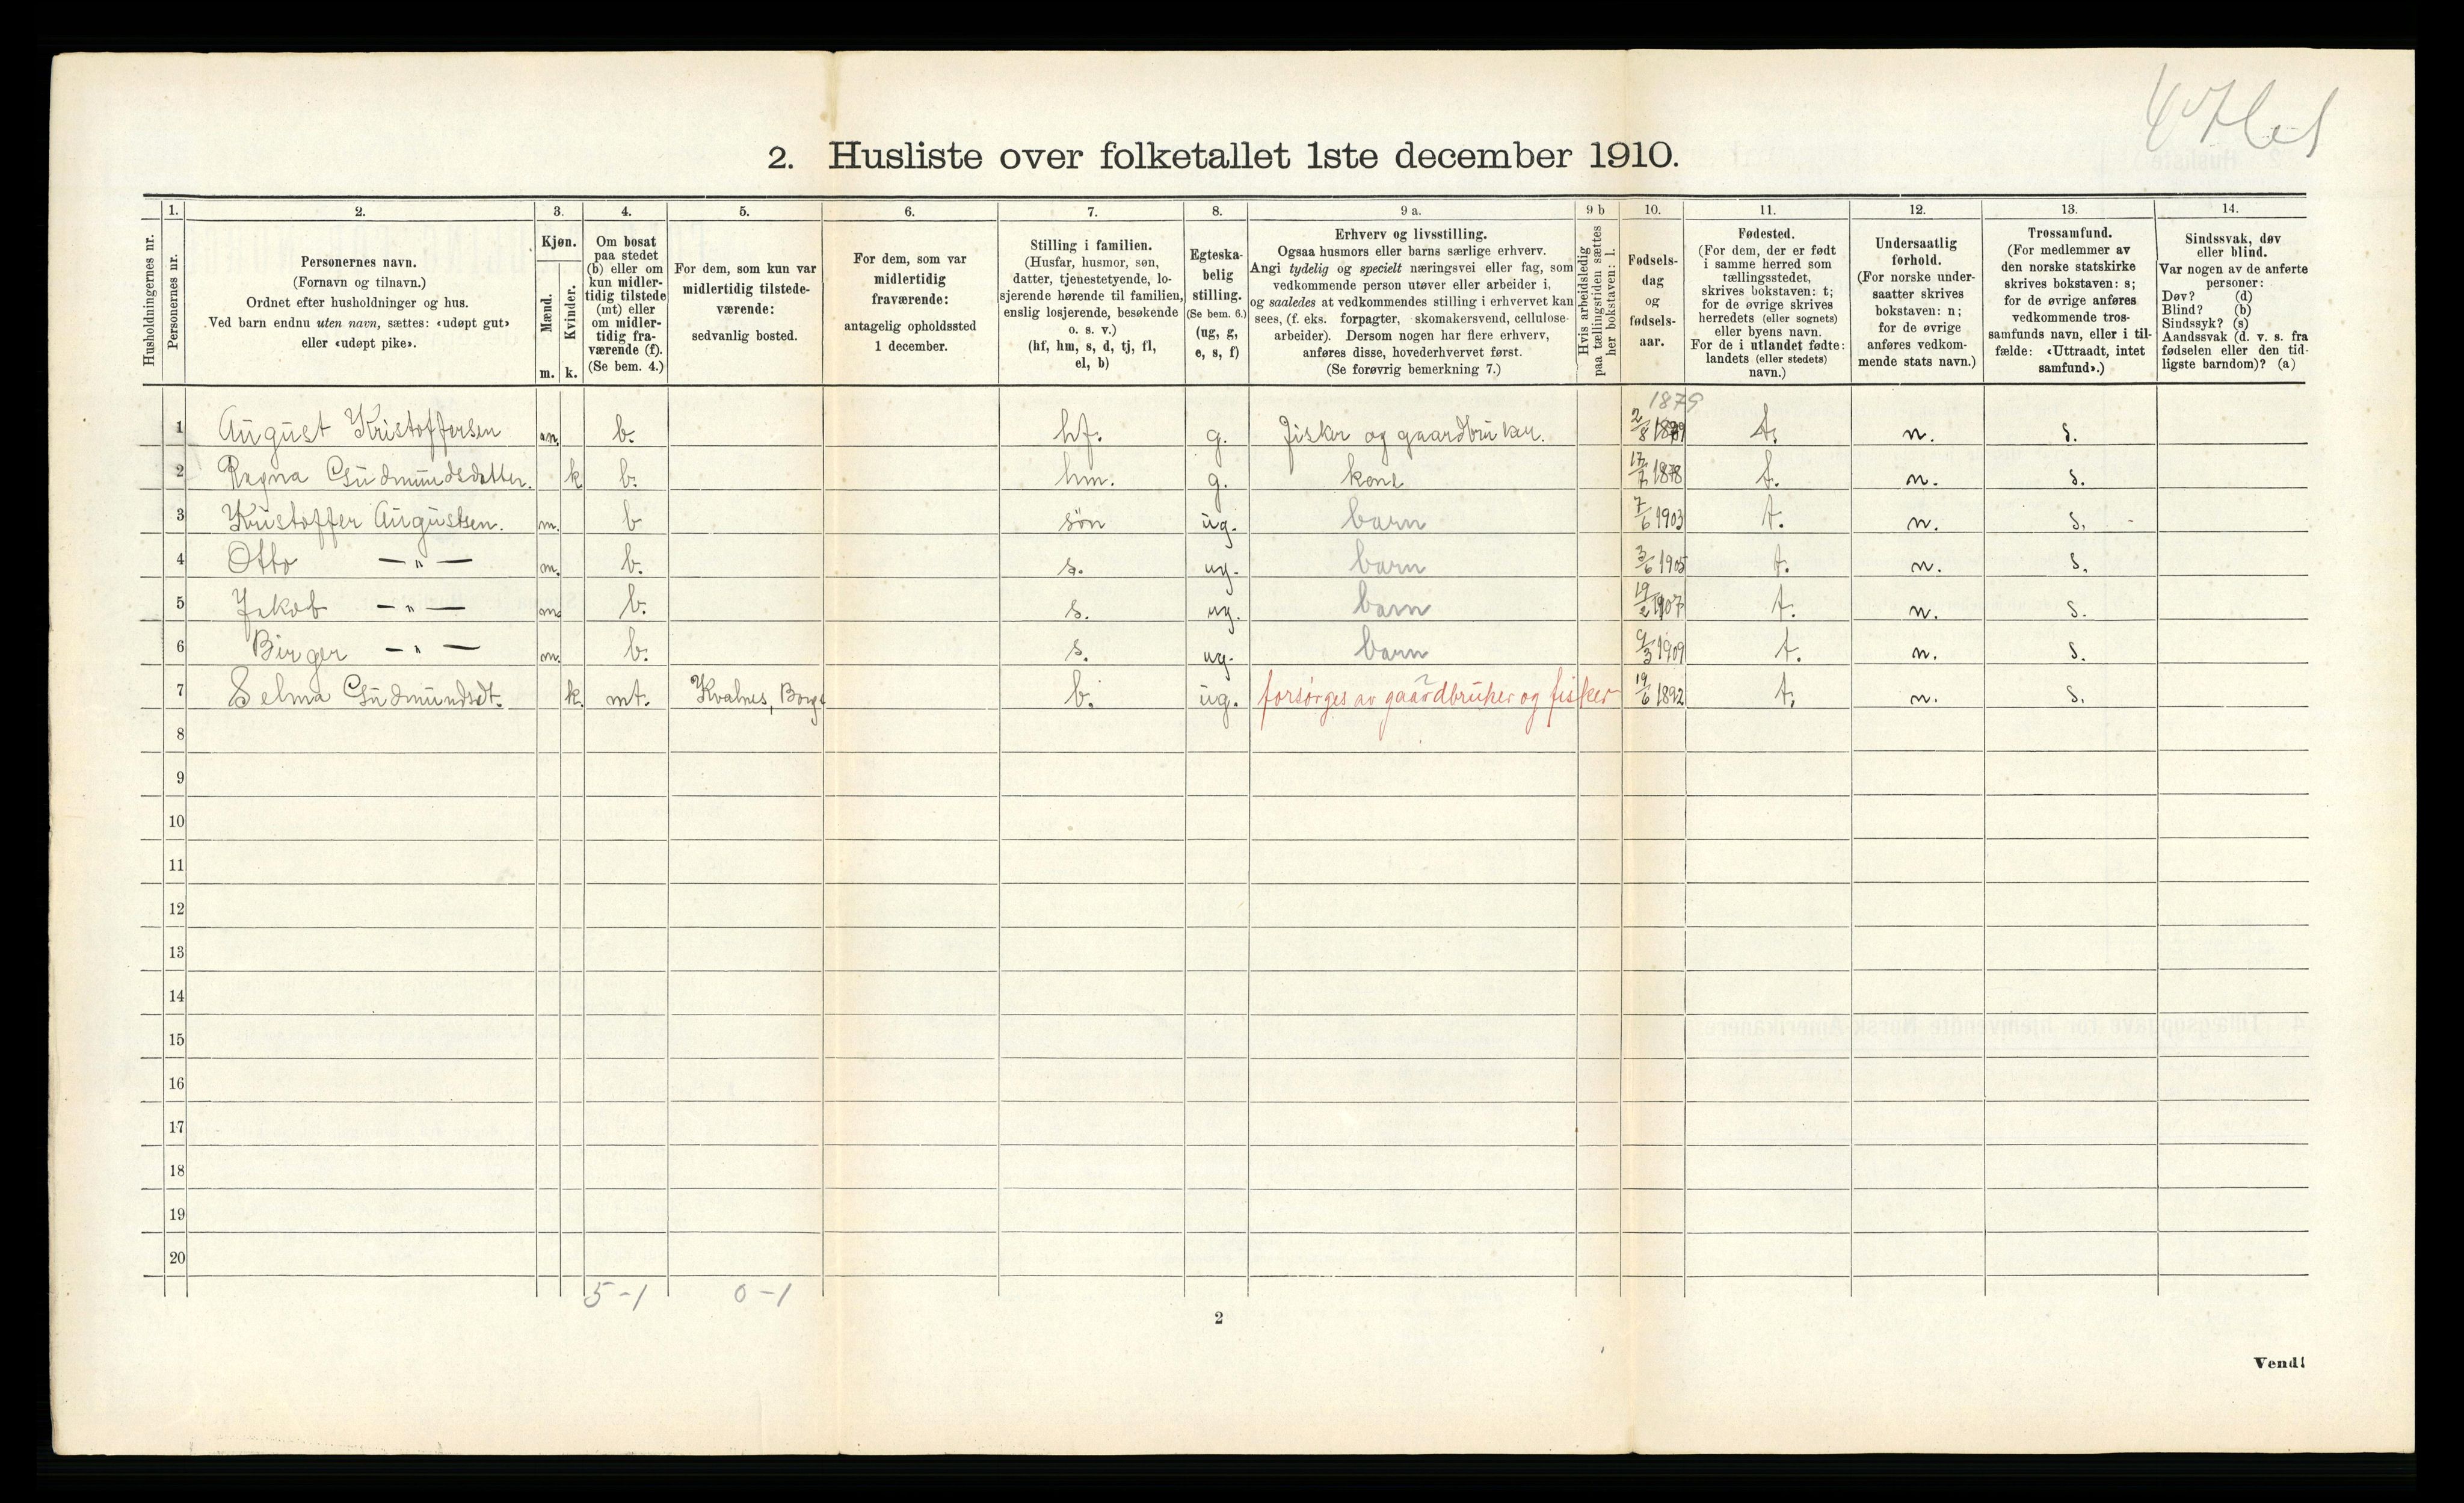 2. Husliste over folketallet 1ste december 1910.
Husholdningernes nr.
1.
Personernes nr.
2.
Personernes navn.
(Fornavn og tilnavn.)
Ordnet efter husholdninger og hus.
Ved barn endnu uten navn, sættes: «udøpt gut»
eller «udøpt pike».
3.
Kjøn.
Mænd.
Kvinder.
m. k.
4.
Om bosat
paa stedet
(b) eller om
kun midler-
tidig tilstede
(mt) eller
om midler-
tidig fra-
værende (f).
(Se bem. 4.)
5.
For dem, som kun var
midlertidig tilstede-
værende:
sedvanlig bosted.
6.
For dem, som var
midlertidig
fraværende:
antagelig opholdssted
1 december.
7.
Stilling i familien.
(Husfar, husmor, søn,
datter, tjenestetyende, lo-
sjerende hørende til familien,
enslig losjerende, besøkende
o. s. v.)
(hf, hm, s, d, tj, fl,
el, b)
8.
Egteska-
belig
stilling.
(Se bem. 6.)
(ug, g,
e, s, f)
9 a.
Erhverv og livsstilling.
Ogsaa husmors eller barns særlige erhverv.
Angi tydelig og specielt næringsvei eller fag, som
vedkommende person utøver eller arbeider i,
og saaledes at vedkommendes stilling i erhvervet kan
sees, (f. eks. forpagter, skomakersvend, cellulose-
arbeider). Dersom nogen har flere erhverv,
anføres disse, hovederhvervet først.
(Se forøvrig bemerkning 7.)
9 b
Hvis arbeidsledig
paa tællingstiden sættes
her bokstaven: l.
10.
Fødsels-
dag
og
fødsels-
aar.
11.
Fødested.
(For dem, der er født
i samme herred som
tællingsstedet,
skrives bokstaven: t;
for de øvrige skrives
herredets (eller sognets)
eller byens navn.
For de i utlandet fødte:
landets (eller stedets)
navn.)
12.
Undersaatlig
forhold.
(For norske under-
saatter skrives
bokstaven: n;
for de øvrige
anføres vedkom-
mende stats navn.)
13.
Trossamfund.
(For medlemmer av
den norske statskirke
skrives bokstaven: s;
for de øvrige anføres
vedkommende tros-
samfunds navn, eller i til-
fælde: «Uttraadt, intet
samfund».)
14.
Sindssvak, døv
eller blind.
Var nogen av de anførte
personer:
Døv? (d)
Blind? (b)
Sindssyk? (s)
Aandssvak (d. v. s. fra
fødselen eller den tid-
ligste barndom)? (a)
1879
1 August Kristoffersen m. b. hf. g. fisker og gaardbruker. 2/8 1879 t. n. s.
2 Ragna Gudmundsdatter. k b. hm. g. kone 17/7 1878 t. n. s.
3 Kristoffer Augustsen. m. b søn ug. barn 7/6 1903 t. n. s.
4 Otto —"— m. b. s. ug. barn 3/6 1905 t. n. s.
5 Jakob —"— m b. s. ug. barn 19/2 1907 t. n. s.
6 Birger —"— m. b. s. ug. barn 9/3 1909 t. n. s.
7 Selma Gudmundsdt. k. mt. Kvalnes, Borge b. ug. forsørges av gaardbruker og fisker 19/6 1892 t. n. s.
8
9
10
11
12
13
14
15
16
17
18
19
20
5-1 0-1
2
Vend!